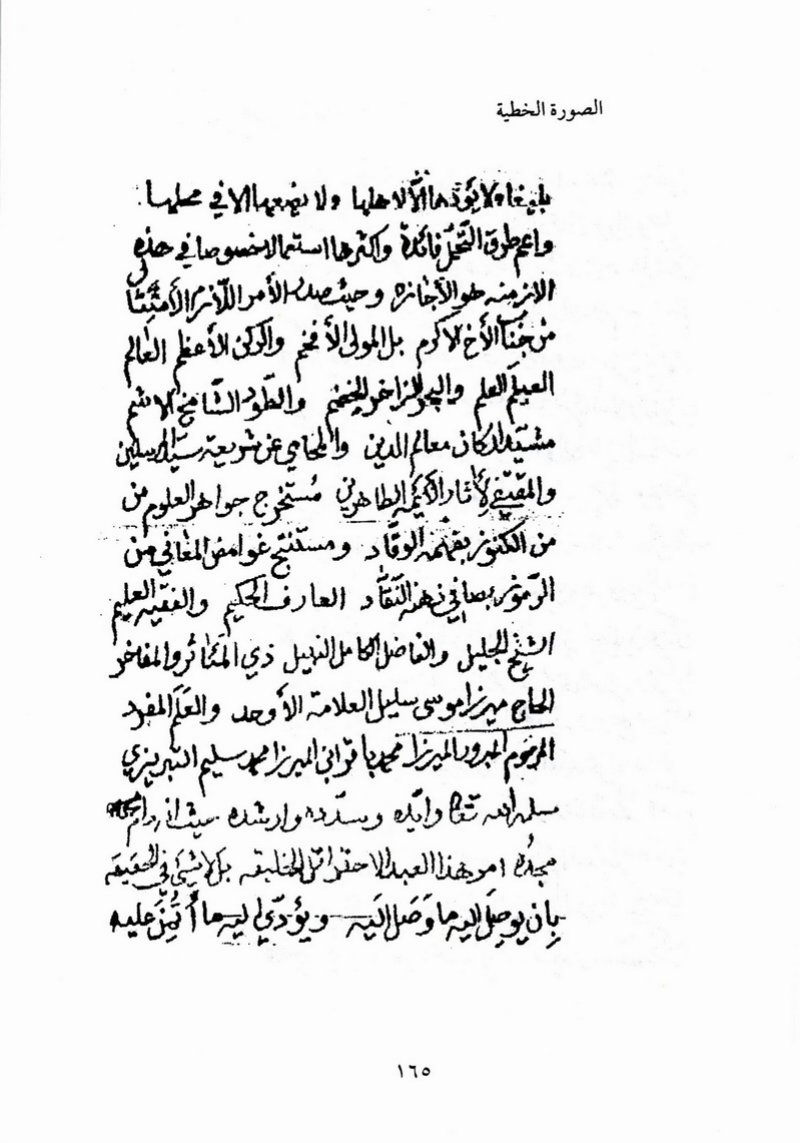 الصورة الخطية
بليغا ولا يؤدها الّا لاهلها ولا يضعها الا في محلها
واعم طرق التحمّل فائدة واكثرها استعمالا خصوصا في هذه
الازمنه هو الأجازه وحيث صدر الأمر اللّازم الأمتثال
من جناب الأخ الاكرم بل المولى الأفخم والركن الأعظم العالم
العيلم العلم والبحر الزاخر الخضم والطّود الشّامخ الاشم
مشيّد اركان معالم الدين والمحامي عن شريعة سيّد المرسلين
والمقتفي لِأثار الأئمه الطاهرين مُستخرج جواهر العلوم من
من الكنوز بفهمه الوقّاد ومستنتج غوامض المعاني من
الرّموز بصافي ذهنه النّقّاد العارف الحكيم والفقيه العليم
الشيخ الجليل والفاضل الكامل النبيل ذي المَئاثر والمفاخر
الحاج ميرزا موسى سليل العلامة الأوحد والعَلَم المفرد
المرحوم المبرور الميرزا محمد باقر ابن الميرزا محمد سليم التبريزي
سلمه الله تعا وايّده وسدّده وارشده حيث انه دام
مجدُه امر هذا العبد الاحقر اقل الخليقه بل لاشيئ في الحقيقه
بان يوصِل اليه ما وَصَل اليَه ويؤدّي اليه ما أُتمِنَ عليه
١٦٥